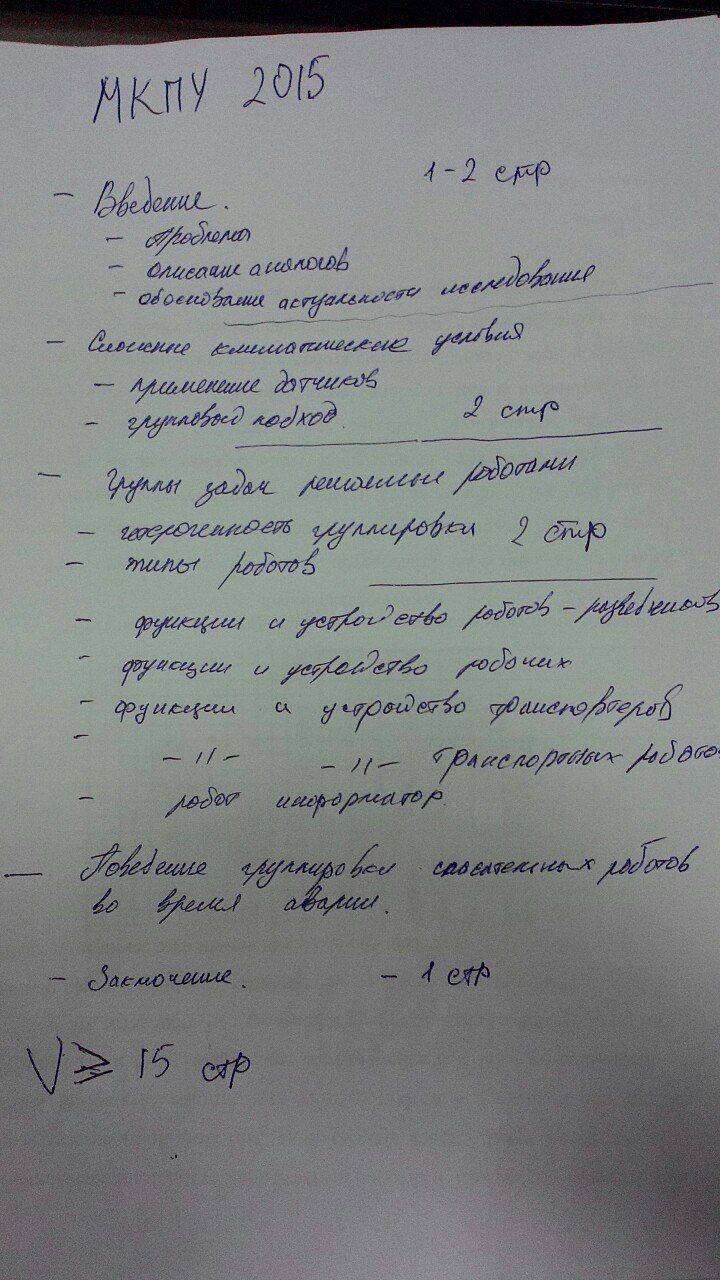 МКПУ 2015
1-2 стр
- Введение.
- проблема
- описание аналогов
- обоснование актуальности исследования
- Сложные климатические условия
- применение датчиков
- групповой подход. 2 стр
- Группы задач решаемые роботами
- гетерогенность группировки 2 стр
- типы роботов
- функции и устройство роботов-разведчиков
- функции и устройство рабочих
- функции и устройство транспортеров
- -//- -//- транспортных роботов
- робот информатор.
- Поведение группировки спасательных роботов
во время аварии.
- Заключение. - 1 стр
V ≥ 15 стр